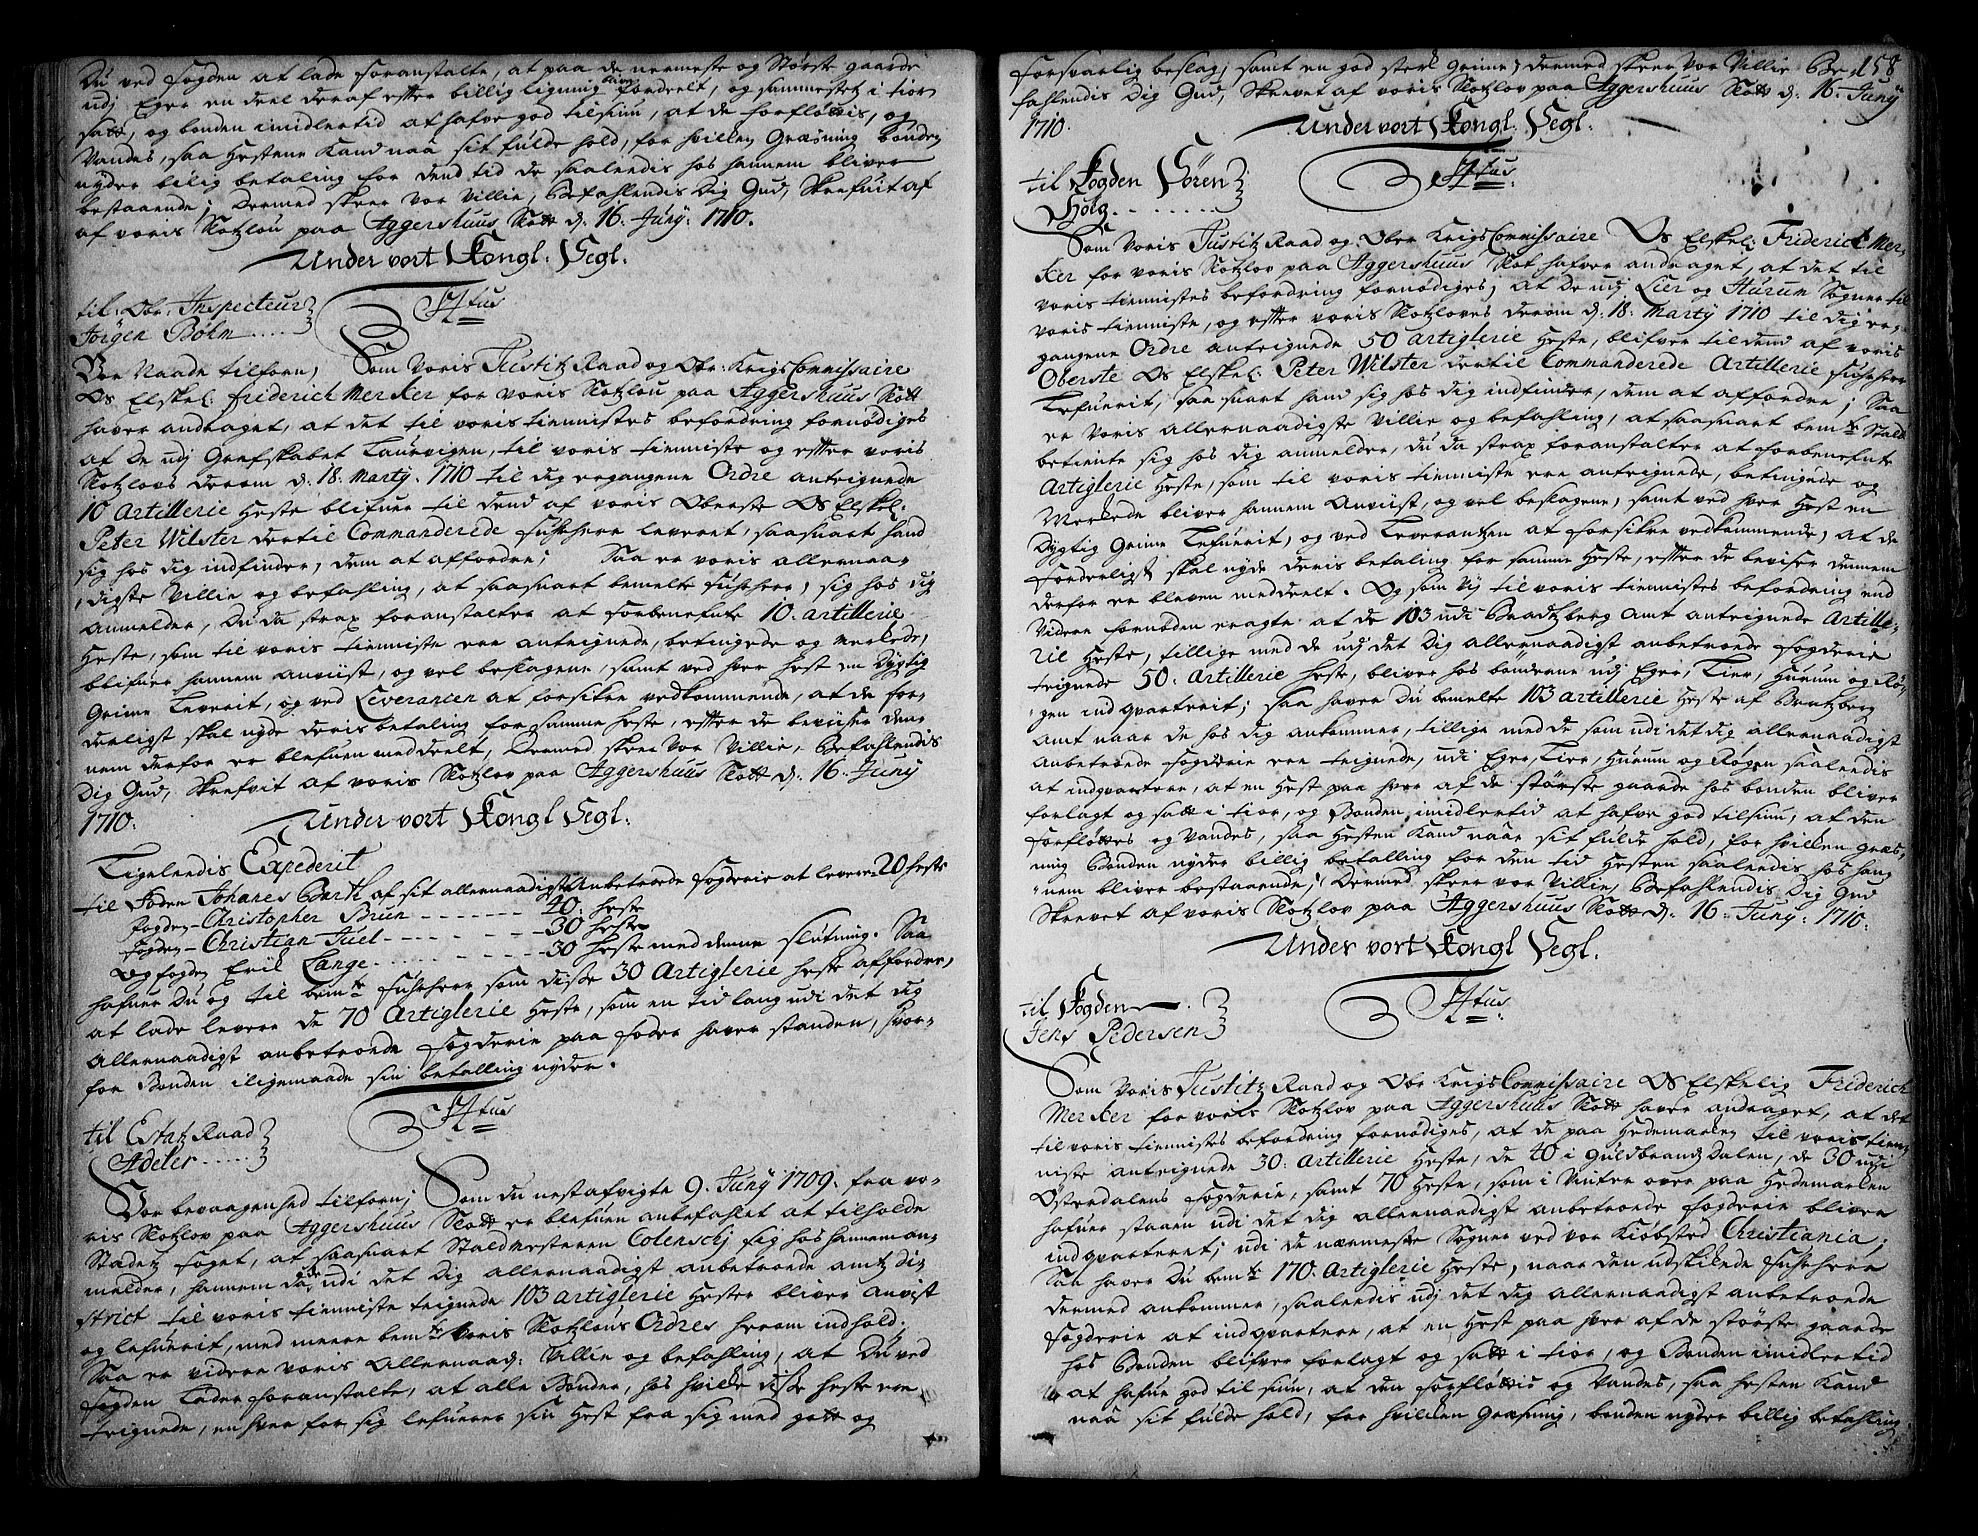 Du ved fogden at lade foranstalte, at paa de nermeste og Største gaarde
udj Eger en deel deraf efter billig ligning bliver fordeelt, og sammestetz i fior
satt, og bonden imidlertid at hafve god tilsiun, at de forfløttis, og
Vandes, saa Hestene kand naa sit fulde hold, for hvilken Græsning bonden
nyder bilig betaling for dend tid de saalendis hos hannem bliver
bestaaende; Dermed skeer vor Villie, Befahlendis Dig Gud, Skrefuit af
af voris Slotzlou paa Aggershuus Slott d. 16. Junÿ. 1710.
Under vort Kongl: Segl.
til Obr: Inspecteur
Jörgen Böhm
F4tus
Vor Naade tilforn, Som Voris Justitz Raad og Obr: Krigs Commissaire
Os Elskel: friderich Merker for voris Slotzlou paa Aggershuus Slott
haver andraget, at det til voris tiennistes befordring fornødiges
at De udj Grefskabet Laurvigen, til voris tienniste og effter voris
Slotzlovs Derom d: 18. Marty. 1710 til dig ergangene Ordre anteignede
10 Artillerie Heste blifuer til dend af voris Oberste Os Elskel:
Peter Wilster dertil Commanderede fuhrherr leverit, saasnart hand
sig hos dig indfinder, dem at affordre; Saa er voris allernaa-
digste Villie og befahling, at saasnart bemelte fuhrherr, sig hos dig
anmelder, Du da strax foranstalter at forbenefnte 10. artillerie
Heste, som til voris tienniste ere anteignede, betingede og merkede,
blifuer hannem anviist, og vel beslagene, samt ved hver hest en Dygtig
Grime Leverit, og ved Leverancen at forsikre vedkommende, at de for-
derligst skal nyde deris betaling for samme heste, effter de beviiser den-
nem derfor er blefuen meddeelt, Dermed skeer vor Villie, Befahlendis
Dig Gud, Skrefvit af voris Slotzlov paa Aggershuus Slott d. 16. Junÿ
1710. Under vort Kongl Segl.
Ligelendis Expederit
til Foden Johanes Barth af sit allernaadigst Anbetroede fogderie at levere 20 heste
fogden Christopher Brun - - - - - - - 40. heste
fogden Christian Juel - - - - - - - 30 heste
Og fogden Erik Lange - - - - - - - 30 heste med denne slutning. Saa
hafuer Du og til bemte fuhrherr som disse 30 Artiglerie heste affordrer,
at lade levere de 70 Artiglerie Heste, som en tid lang udi det dig
Allernaadigst anbetroede fogderie paa foder haver standen, hvor-
for Bonden iligemaade sin betalling nyder.
til Estatz Raad
Adeler
F4tus
Vor bevaagenhed tilforn; Som du nest afvigte 9. Junÿ 1709. fra vo-
ris Slotzlov paa Aggershuus Slott er blefuen anbefahlet at tilholde
Stadens foget, at saasnart Staldmesteren Colenschj sig hos hannem an-
melder, hannem da de udi det dig allernaadigst anbetroede amtz Di-
strict til voris tienniste teignede 103 artiglerie Hester bliver Anvist
og lefuerit, med meere bemte voris Slotzlous Ordres herom indhold;
Saa er videre voris Allernaad: Villie og befahling, at Du ved
fogden Lader foranstalte, at alle Bønder, hos hvilke disse heste ere
teignede, en hver for sig lefuerer sin Hest fra sig med gott og
158
forsvarlig beslag, samt en god sterk Grime; dermed skeer vor Villie Be-
fahlendis Dig Gud, Skrevet af voris Slotzlov paa Aggershuus Slott d. 16. Junÿ
1710. Under vort Kongl: Segl.
til Fogden Sören
Holg
F4tus
Som Voris Justitz Raad og Ober Krigs Commissaire Os Elskel: Friderich Mer-
ker for voris Slotzlov paa Aggershuus Slot hafver andraget, at det til
voris tiennistes befordring fornødiges, at De udj Lier og Hurum Sogner til
voris tienniste, og effter voris Slotzloves derom d. 18. Marty 1710 til dig er-
gangene Ordre anteignede 50 artiglerie Heste, blifver til dend af voris
Oberste Os Elskel: Peter Wilster dertil Commanderede Artillerie fuhrherr
Lefuerit, saa snart hand sig hos dig indfinder, dem at affordre; Saa
er Voris allernaadigste Villie og befahling, at saasnart bemte Stald
betiente sig hos dig anmelder, du da strax foranstalter at forbenefnte
Artiglerie Heste, som til voris tienniste ere anteignede, betingede og
Merkede bliver hannem Anviist, og vel beslagene, samt ved hver Hest en
Dygtig Grime Lefuerit, og ved Leverantzen at forsikre vedkommende, at de
forderligst skal nyde deris betaling for samme Heste, effter de beviser dennem
derfor er bleven meddeelt. Og som Vj til voris tiennistes befordring end
Videre fornøden eragte at de 103 udi Bradtzberg Amt anteignede Artille-
ril Heste, tillige med de udj det Dig allernaadigst anbetroede fogderie
teignede 50. Artillerie heste, bliver hos bønderne udj Eger, Lier, Hurum og Rø-
gen indqvarterit; saa haver Du bemelte 103 artillerie Heste af Bratzberg
Amt naar de hos dig ankommer, tillige med de som udi det dig allernaadigst
Anbetroede fogderie ere teignede, udi Eger, Lier, Hurum og Røgen saalendis
at indqvartere, at en Hest paa hver af de største gaarde hos bonden bliver
forlagt og satt i fior, og Bonden imidlertid at hafve god tilsiun, at den
forfløttes og Vandes, saa Hesten kand naae sit fulde hold, for hvilken græs-
ning Bonden nyder billig betalling for den tid Hesten saalendis hos han-
nem bliver bestaaende; Dermed skeer vor Villie, Befahlendis Dig Gud
Skrevet af voris Slotzlov paa Aggershuus Slott d. 16. Junÿ. 1710.
Under vort Kongl Segl.
til Fogden
Jens Pedersen
F4tus
Som Voris Justitz Raad og Obr Krigs Commissaire Os Elskelig Friderich
Merker for voris Slotzlov paa Aggershuus Slott haver andraget, at det
til voris tiennistes befordring fornødiges, at de paa Hedemarken til voris tien-
niste anteignede 30. Artillerie Heste, de 40 i Guldbrandz Dalen, de 30 udi
Østerdalens fogderie, samt 70 Heste, som i Vinter over paa Hedemarken
hafuer staaen udi det dig allernaadigst anbetroede fogderie bliver
indqvarteret; udi de nærmeste Sogner ved vor Kiøbsted Christiania;
Saa haver Du bemte 170. Artiglerie Heste, naar den udskikede fuhrherr
dermed ankommer, saalendis udj det dig allernaadigst anbetroede
fogderie at indqvartere, at en Hest paa hver af de største gaarde
hos Bonden blifver forlagt og satt i fior, og Bonden imidlertid
at hafue god tilsiun, at den forfløttis og Vandes, saa hesten kand
naa sit fulde hold, for hvilken Græsning, bonden nyder billig betahling